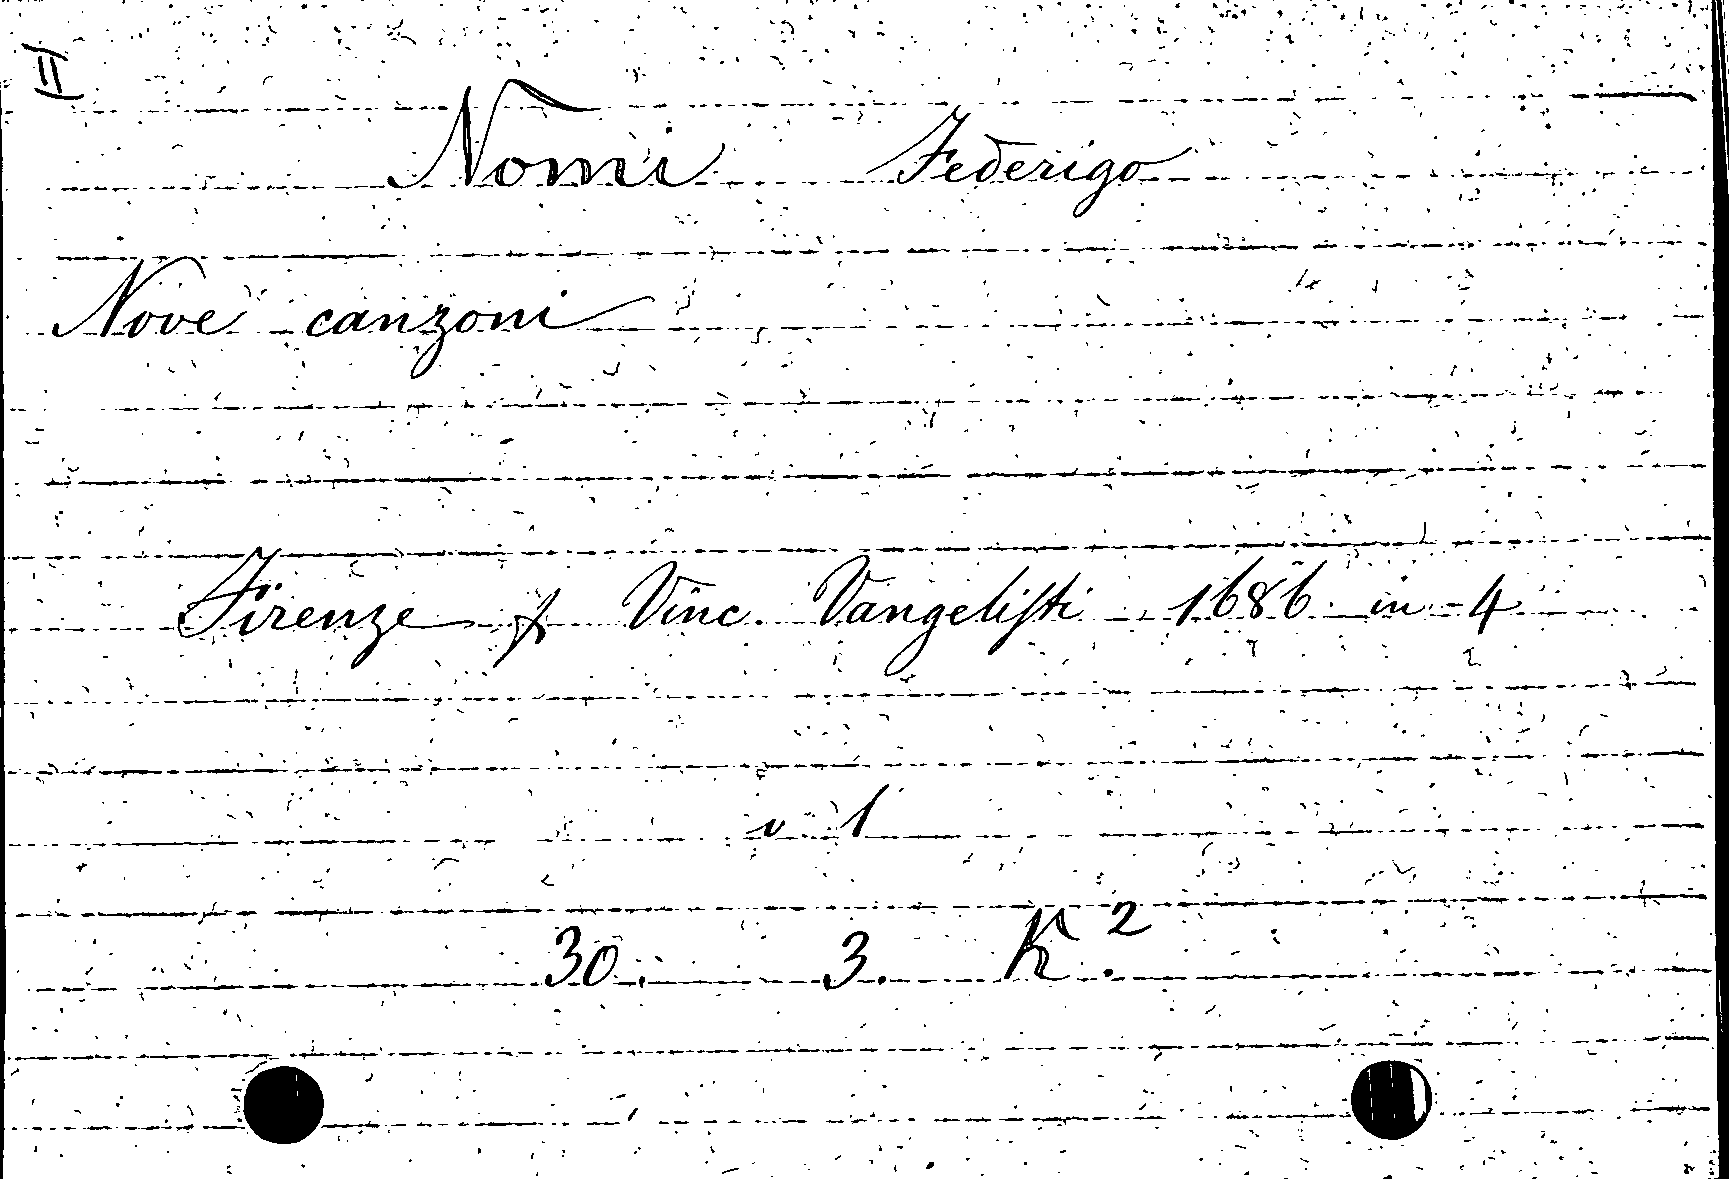 II
Nomi Federigo
Nove canzoni
Firenze f Vinc. Vangelisti 1686 in 4
v 1
30. 3. K².